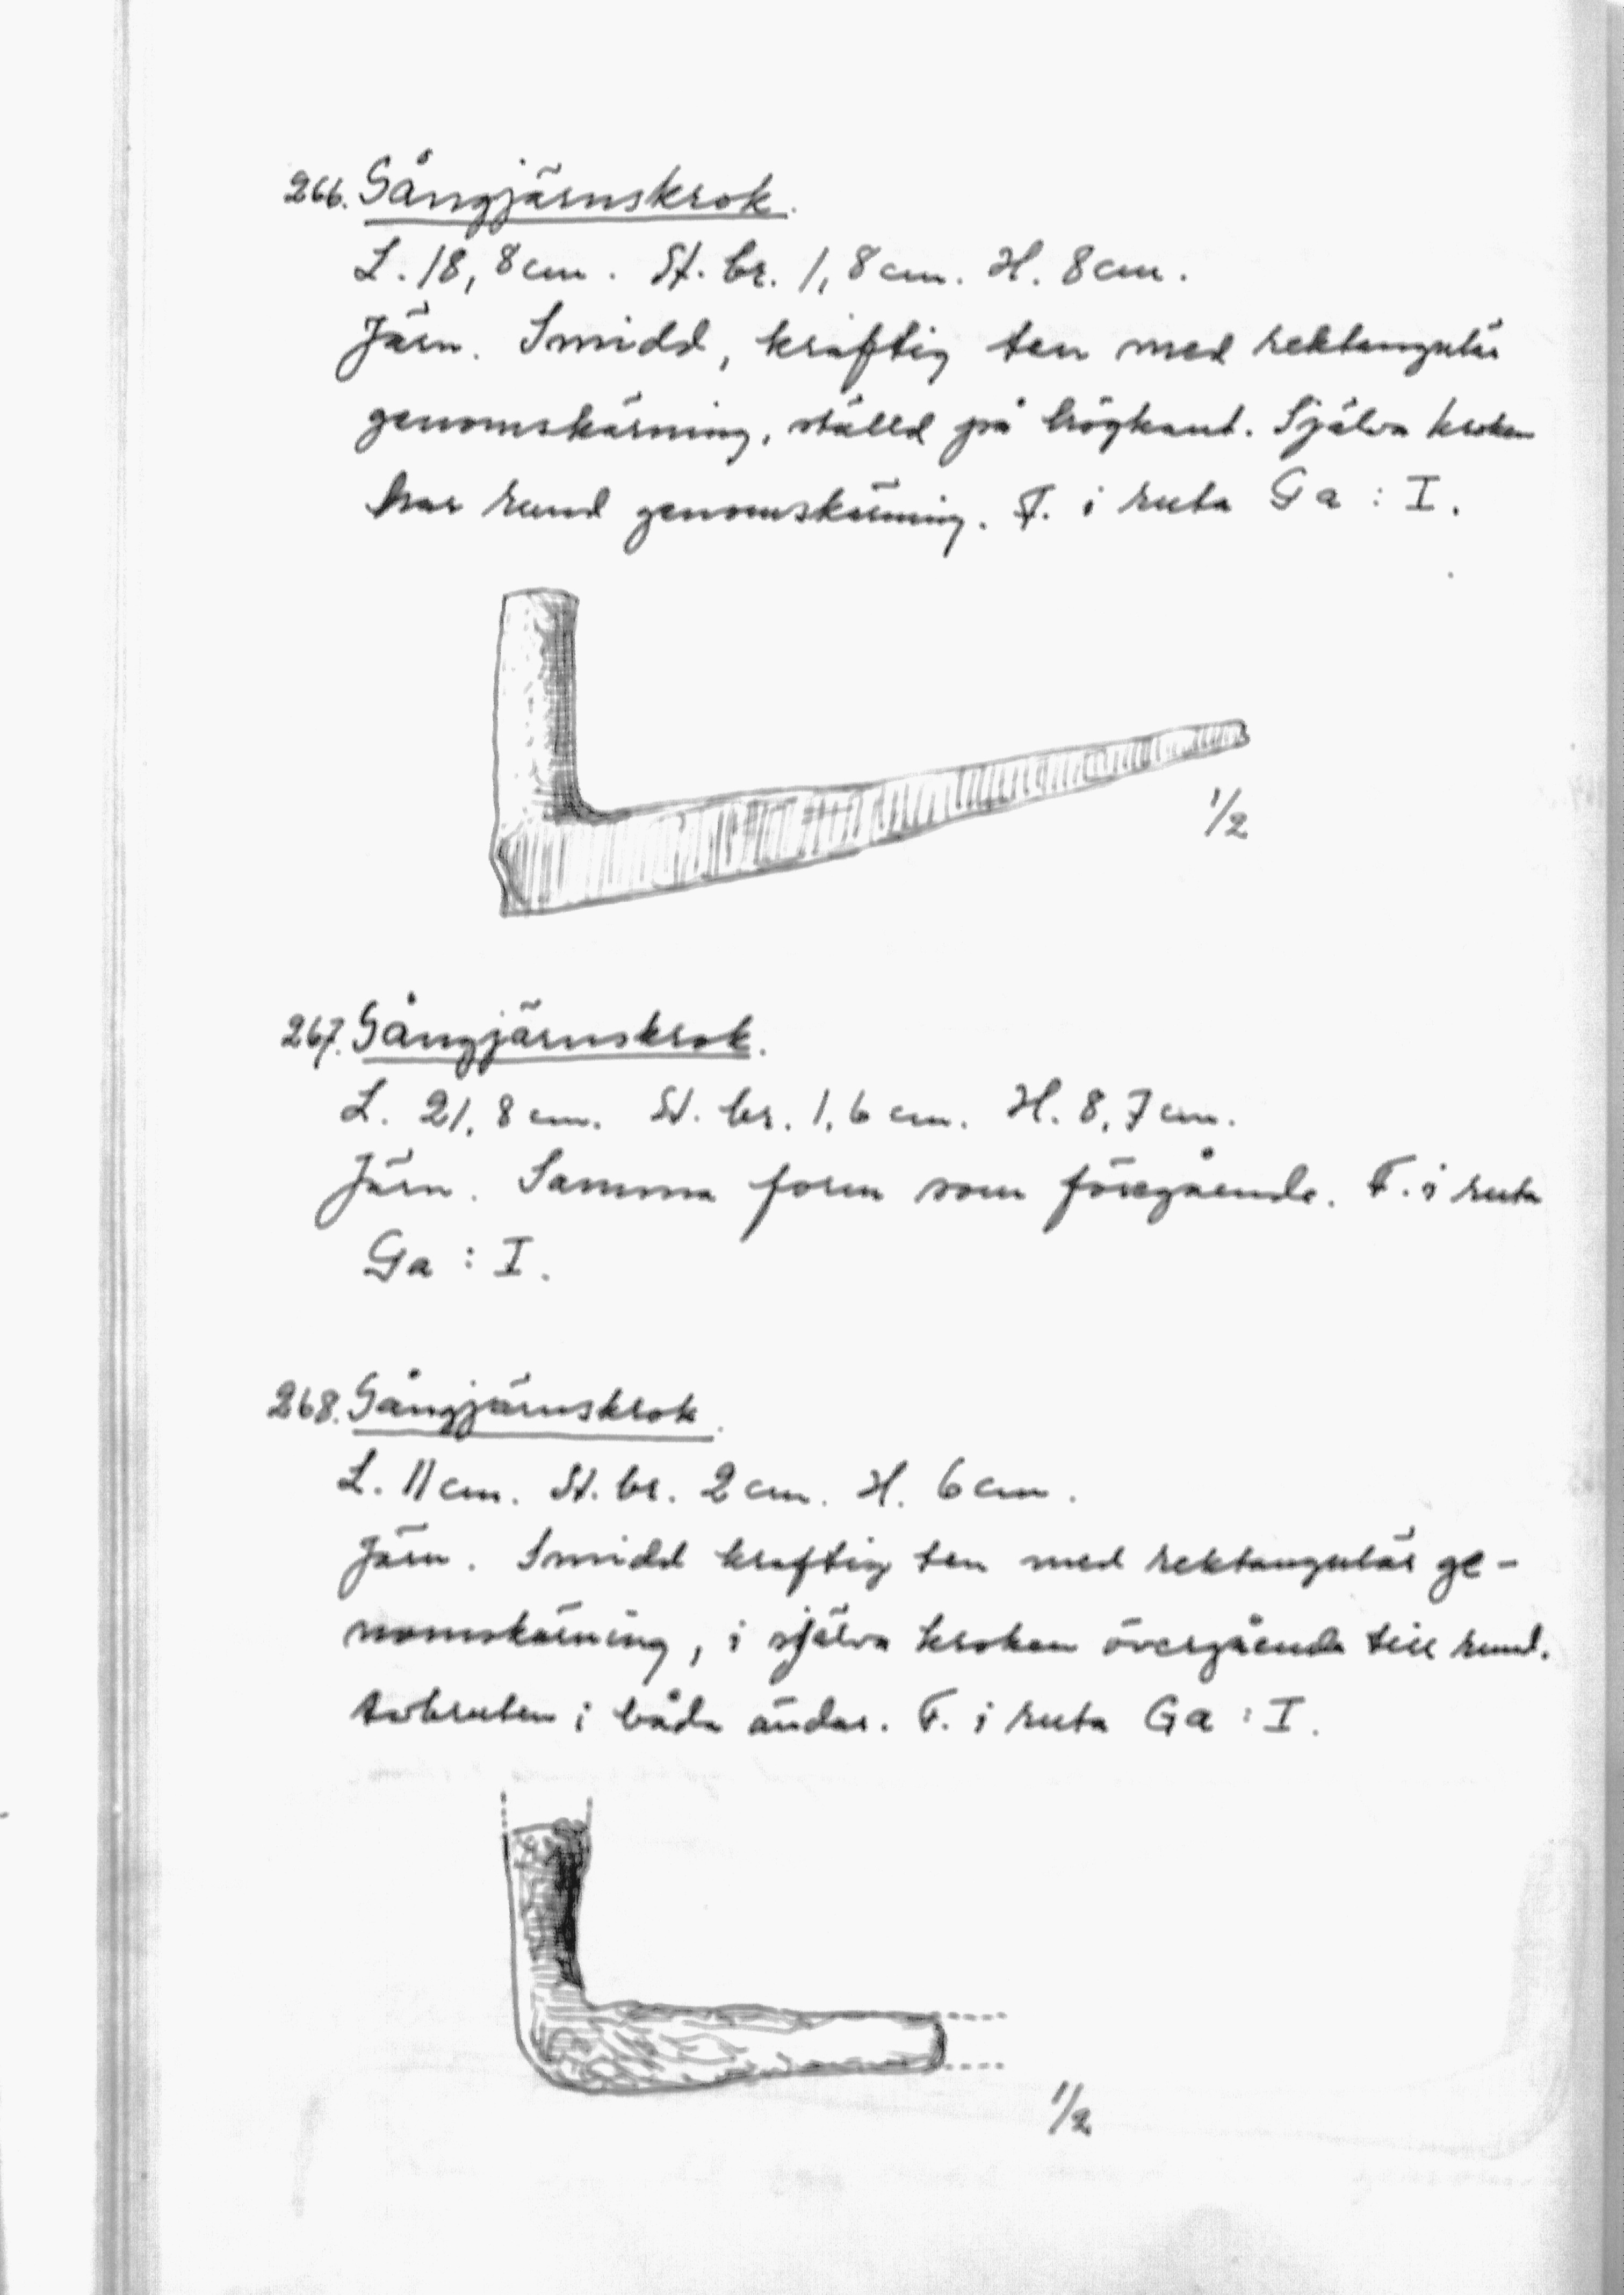 266. Gångjärnskrok.
L. 18,8 cm. St. br. 1,8 cm. H. 8 cm.
Järn. Smidd, kraftig ten med rektangulär
genomskärning, ställd på högkant. Själva kroken
har rund genomskärning. F. i ruta Ga : I.
1/2
267. Gångjärnskrok.
L. 21,8 cm. St. br. 1,6 cm. H. 8,7 cm.
Järn. Samma form som föregående. F. i ruta
Ga : I.
268. Gångjärnskrok.
L. 11 cm. St. br. 2 cm. H. 6 cm.
Järn. Smidd kraftig ten med rektangulär ge-
nomskärning, i själva kroken övergående till rund.
Avbruten i båda ändar. F. i ruta Ga : I.
1/2